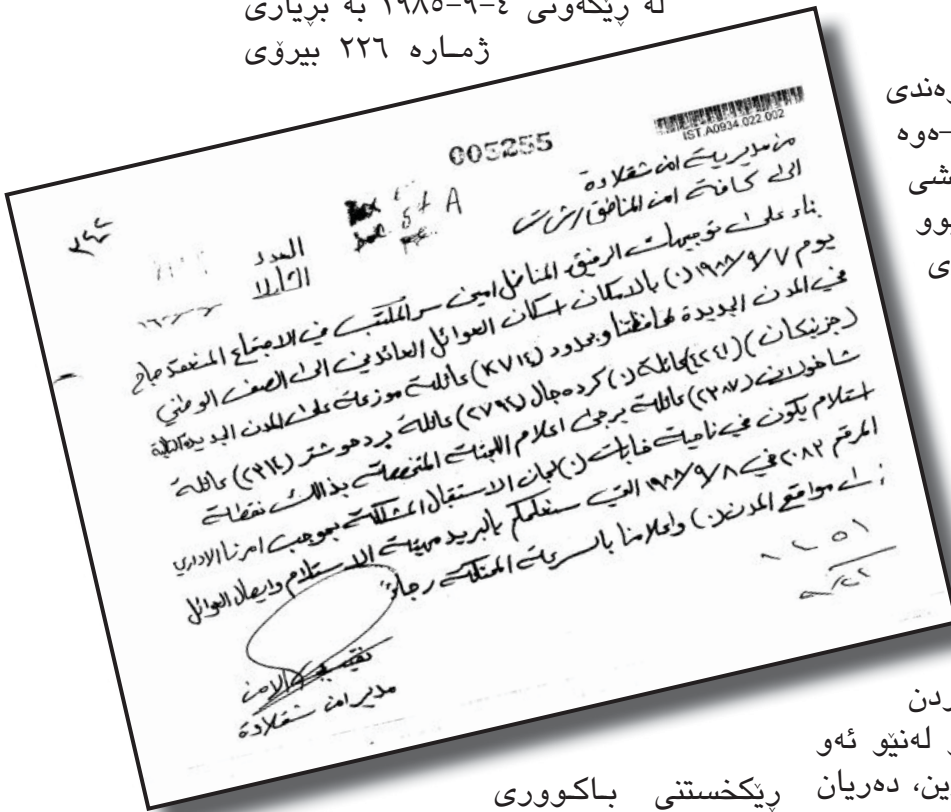 له‌ ڕێکه‌وتی ٤-٩-١٩٨٥ به‌ بڕیاری
ژمـاره‌ ٢٢٦ بیرۆی
ه‌ندی
-ه‌وه‌
شی
بوو
ی
IST.A0934.022.002
005255
من مديرية امن شقلاوة
الى كافة امن المناطق
العدد
التاريخ
بناء على توجيهات الرفيق المناضل امين سر المكتب في الاجتماع المنعقد صباح
يوم ١٩٨٨/٩/٧ (٠) بالامكان اسكان العوائل العائدين الى الصف الوطني
في المدن الجديدة لمحافظتنا وبحدود عائلة موزعة على المدن الجديدة التالية
(جزنيكان) (٤٢٤١) عائلة (٠) كرده جال (٢٧٩٤) عائلة بردهوشتر (٢٣١٤) عائلة
(٢٣٨٧) عائلة يرجى اعلام اللجنة المتخصصة بذالك نقطة
استلام يكون في ناحية خابات (٠) لجان الاستقبال المشكلة بموجب امرنا الاداري
المرقم ٢٠٨٣ في ١٩٨٨/٩/٨ التي ستعلمكم بالبريد مهمة الاستلام وايصال العوائل
مواقع المدن (٠) واعلامنا بالسرعة الممكنة رجاءً
نقيب الامن
مدير امن شقلاوة
ردن
له‌نێو ئه‌و
ین، ده‌ریان
ڕێکخستنی باکووری